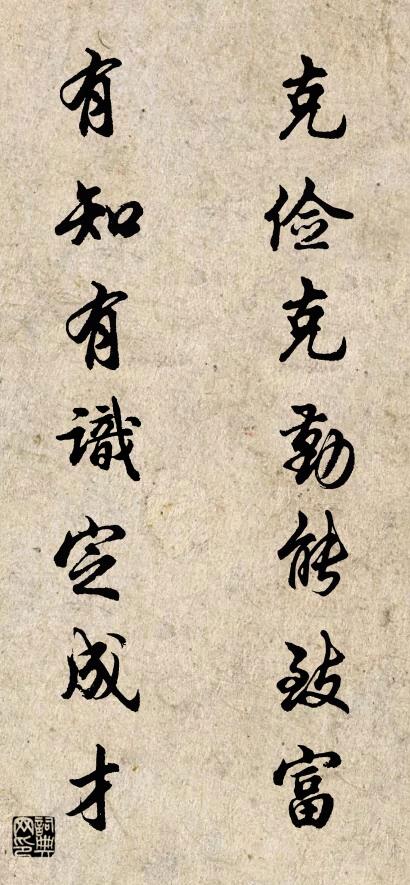 克俭克勤能致富
有知有識定成才
詞典网印